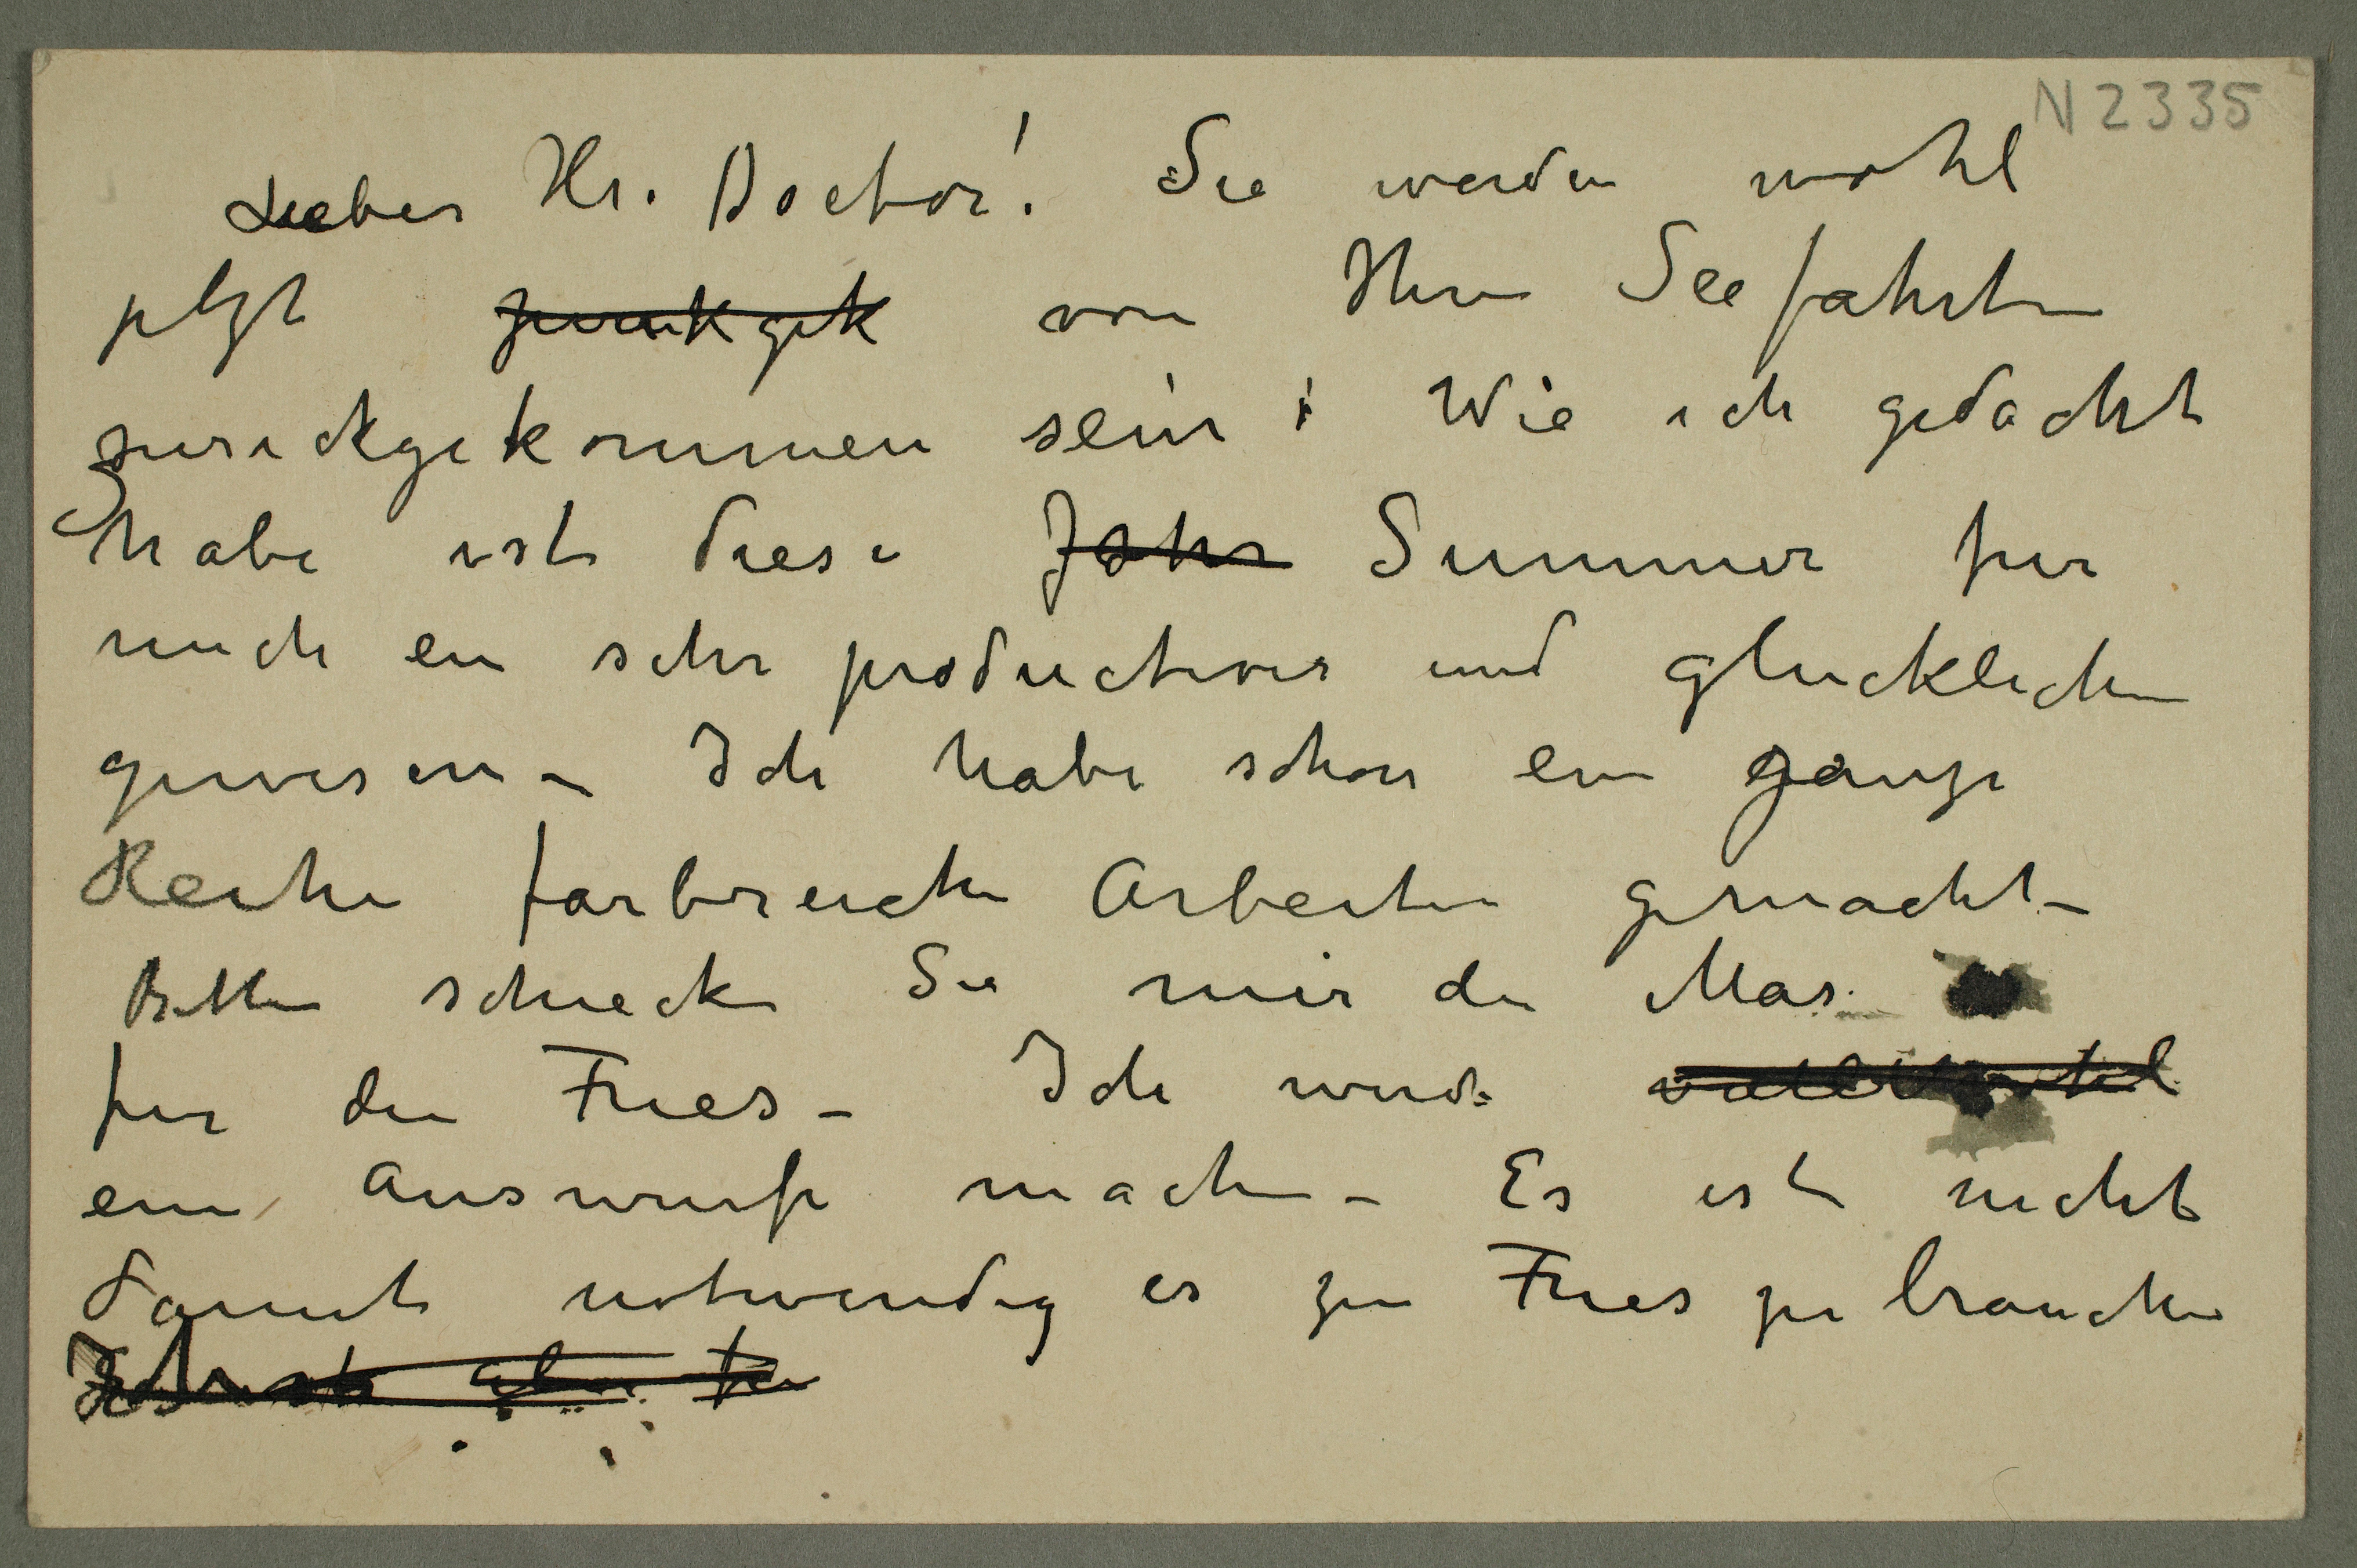 N 2335
Lieber Hr. Doctor! Sie werden wohl
jetzt zurükgek von Ihre Seefahrten
zurickgekommen sein! Wie ich gedacht
habe ist diese Jahr Summer fur
mich ein sehr productiver und glucklichen
gewesen – Ich habe schon eine ganze
Reihe farbreiche Arbeiten gemacht –
Bitte schicke Sie mir die Mas
fur den Fries – Ich werde
eine Auswurfe machen – Es ist nicht
damit notwendig es zum Fries zu brauchen
Ich aber